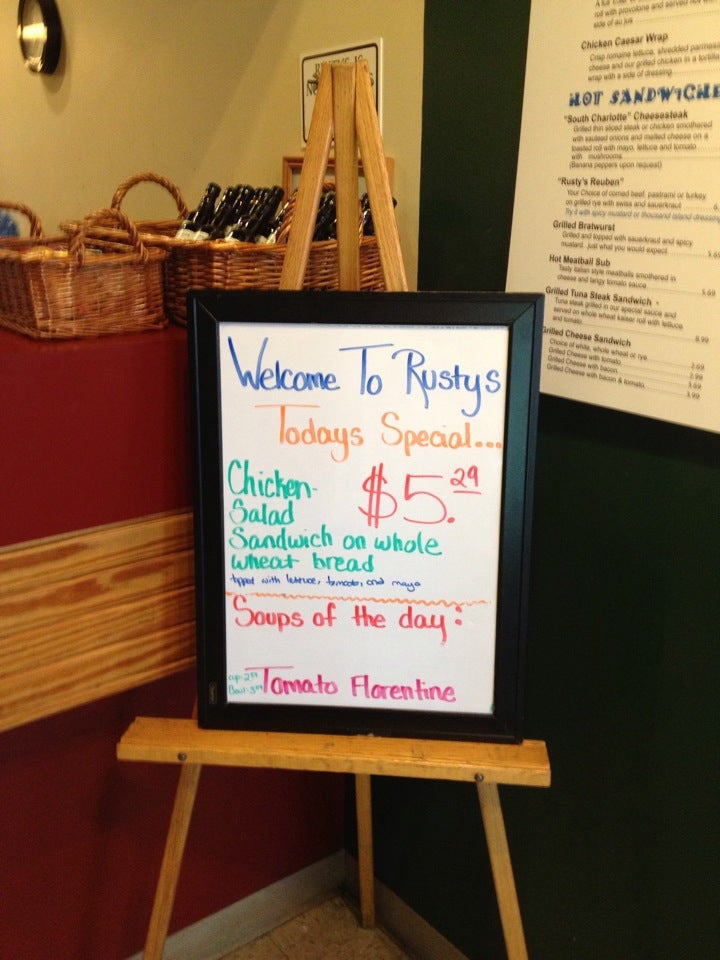 Welcome To Rustys
Todays Special...
Chicken
Salad
Sandwich on whole
wheat bread
$5.29
topped with lettuce, tomato, and mayo
Soups of the day:
cup-2
Bowl-3
Tomato Florentine
roll with provolone and served
side of au jus
Chicken Caesar Wrap
Crisp romaine lettuce, shredded parmesa
cheese and our grilled chicken in a tortilla
wrap with a side of dressing
HOT SANDWICHE
"South Charlotte" Cheesesteak
Grilled thin sliced steak or chicken smothered
with sauteed onions and melted cheese on a
toasted roll with mayo, lettuce and tomato
with mushrooms
(Banana peppers upon request)
"Rusty's Reuben"
Your Choice of corned beef, pastrami or turkey
on grilled rye with swiss and sauerkraut
Try it with spicy mustard or thousand island dressing
Grilled Bratwurst
Grilled and topped with sauerkraut and spicy
mustard. just what you would expect.
Hot Meatball Sub
Tasty italian style meatballs smothered in
cheese and tangy tomato sauce.
Grilled Tuna Steak Sandwich
Tuna steak grilled in our special sauce and
served on whole wheat kaiser roll with lettuce
and tomato 8.99
Grilled Cheese Sandwich
Choice of white, whole wheat or rye 2.69
Grilled Cheese with tomato 2.99
Grilled Cheese with bacon 3.69
Grilled Cheese with bacon & tomato 3.99